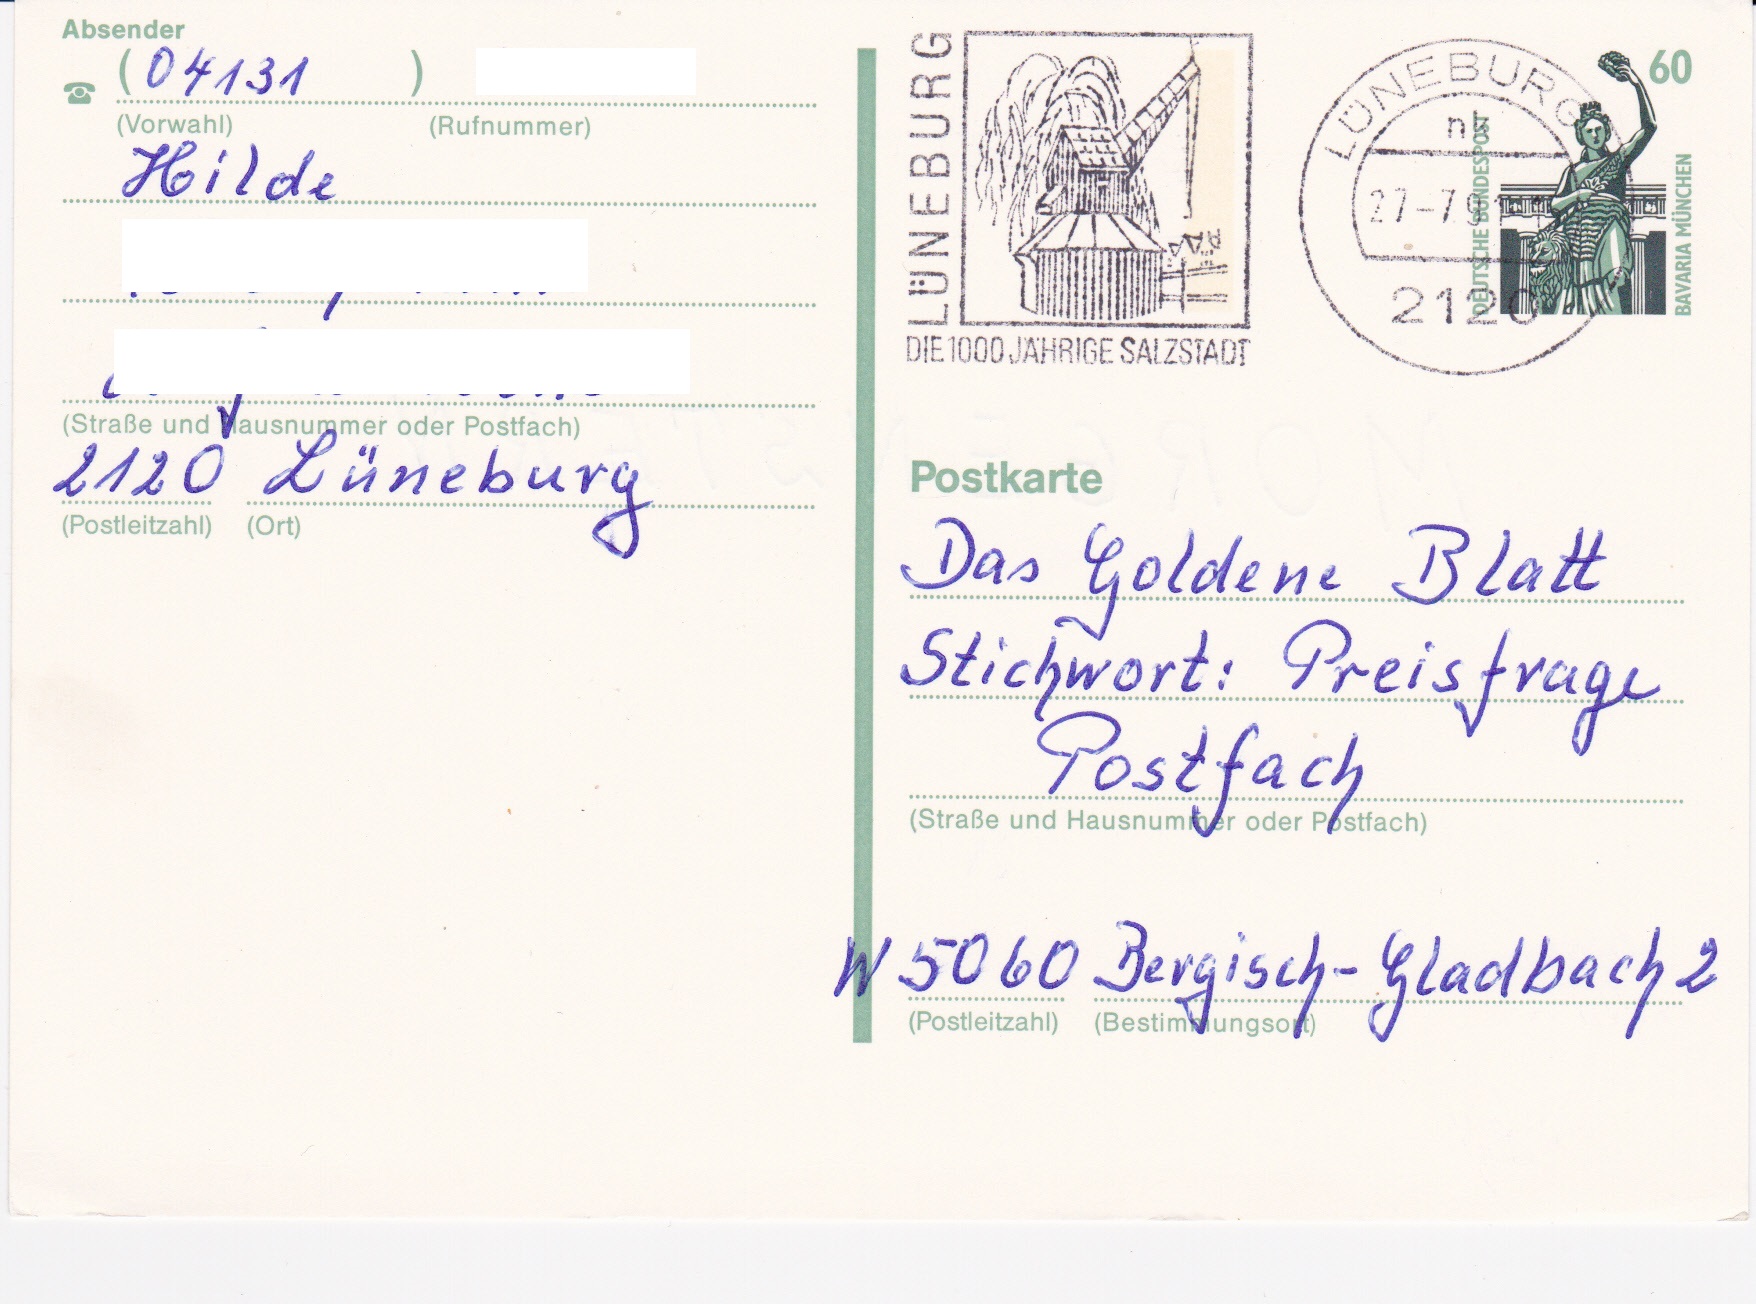 Absender
(04131)
(Vorwahl) (Rufnummer)
Hilde
(Straße und Hausnummer oder Postfach)
2120 Lüneburg
(Postleitzahl) (Ort)
LÜNEBURG
DIE 1000 JÄHRIGE SALZSTADT
LÜNEBURG
27-7.91
2120
60
DEUTSCHE BUNDESPOST
BAVARIA MÜNCHEN
Postkarte
Das Goldene Blatt
Stichwort: Preisfrage
Postfach
(Straße und Hausnummer oder Postfach)
W 5060 Bergisch-Gladbach 2
(Postleitzahl) (Bestimmungsort)